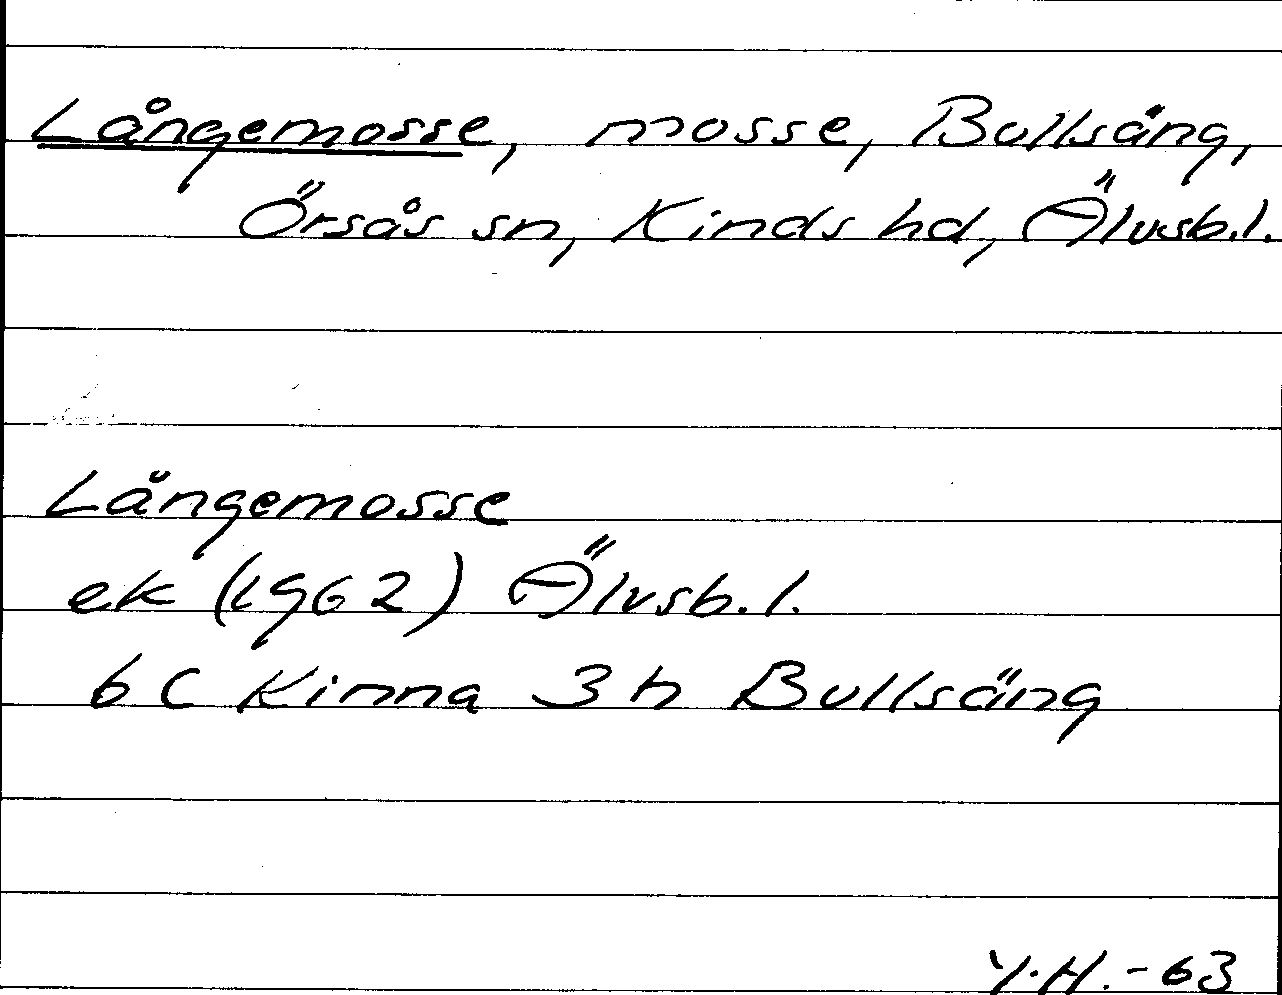 Långemosse, mosse, Bullsäng,
Örsås sn, Kinds hd, Älvsb.l.
Långemosse
ek (1962) Älvsb.l.
6 C Kinna 3 h Bullsäng
Y.H.-63